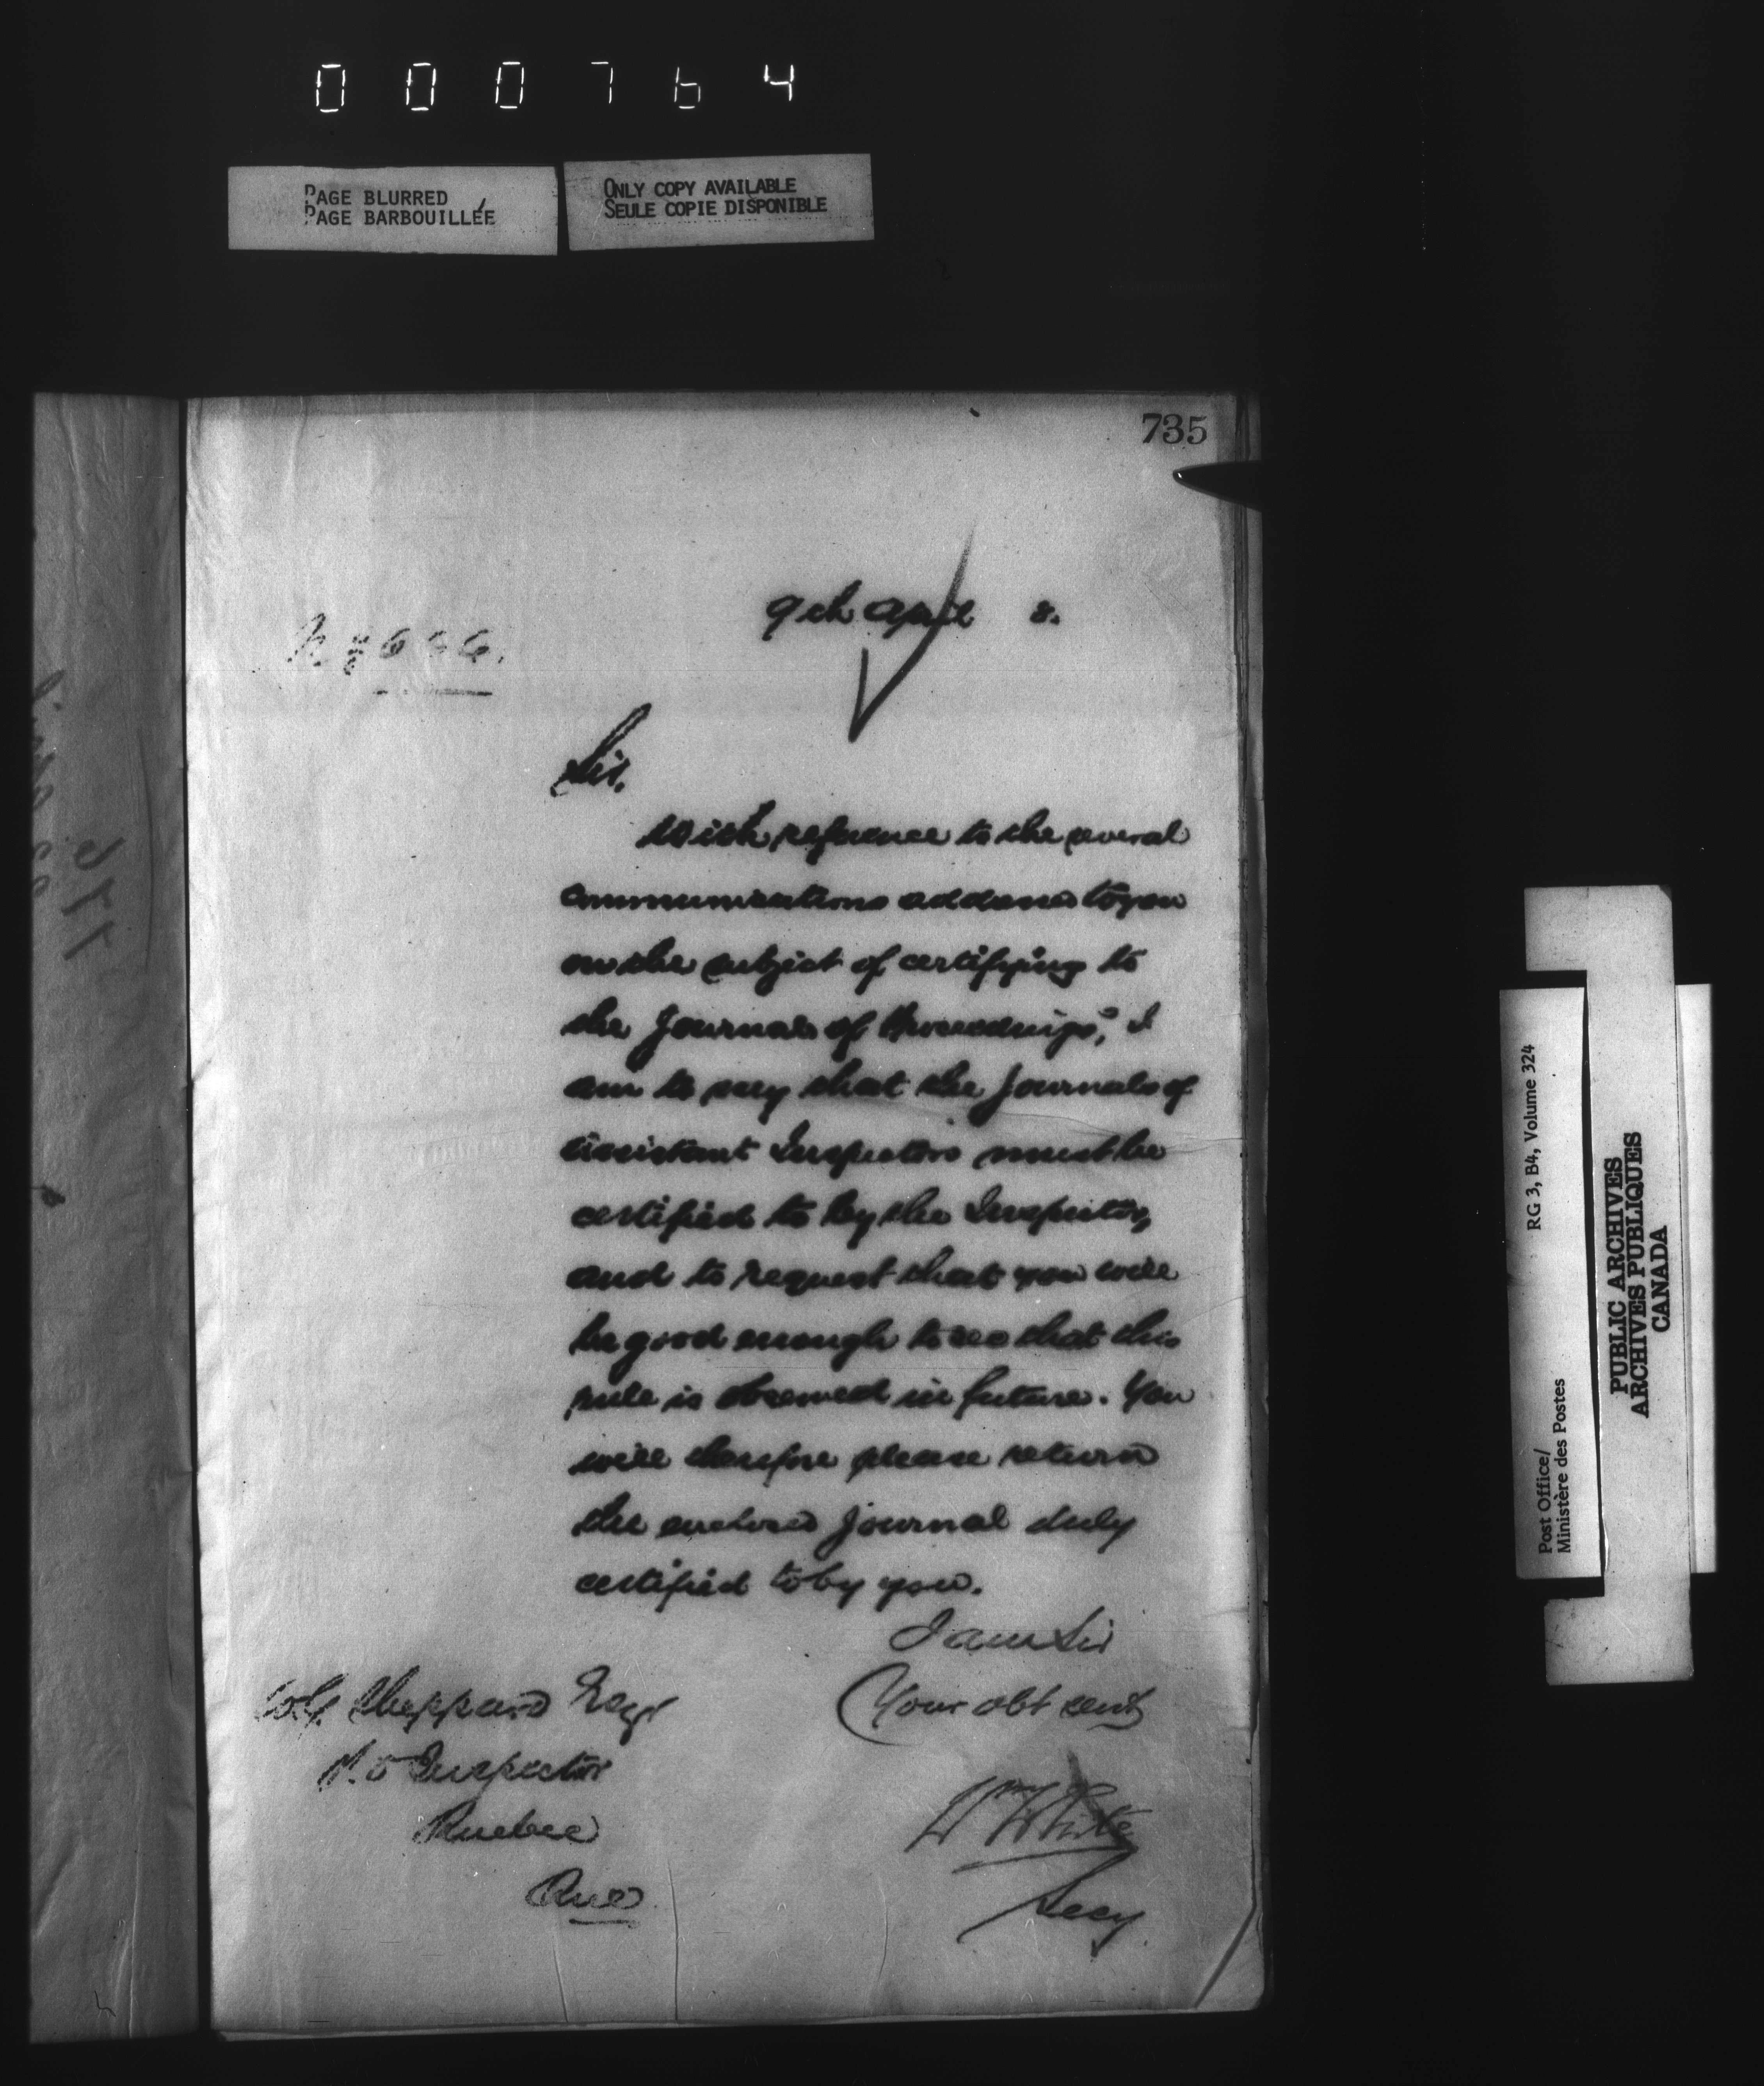 000764
PAGE BLURRED
PAGE BARBOUILLÉE
ONLY COPY AVAILABLE
SEULE COPIE DISPONIBLE
735
9th April 8.
Sir.
With reference to the several
communications addressed to you
on the subject of certifying to
the Journals of Proceedings", I
am to say that the Journals of
Assistant Inspectors must be
certified to by the Inspector,
and to request that you will
be good enough to see that this
rule is observed in future. You
will therefore please return
the enclosed journal duly
certified to by you.
I am Sir
Your obt sevt
Wm White
Secy
Sheppard Esqr
P.O Inspector
Quebec
Que
Post Office/
Ministère des Postes
RG 3, B4, Volume 324
PUBLIC ARCHIVES
ARCHIVES PUBLIQUES
CANADA